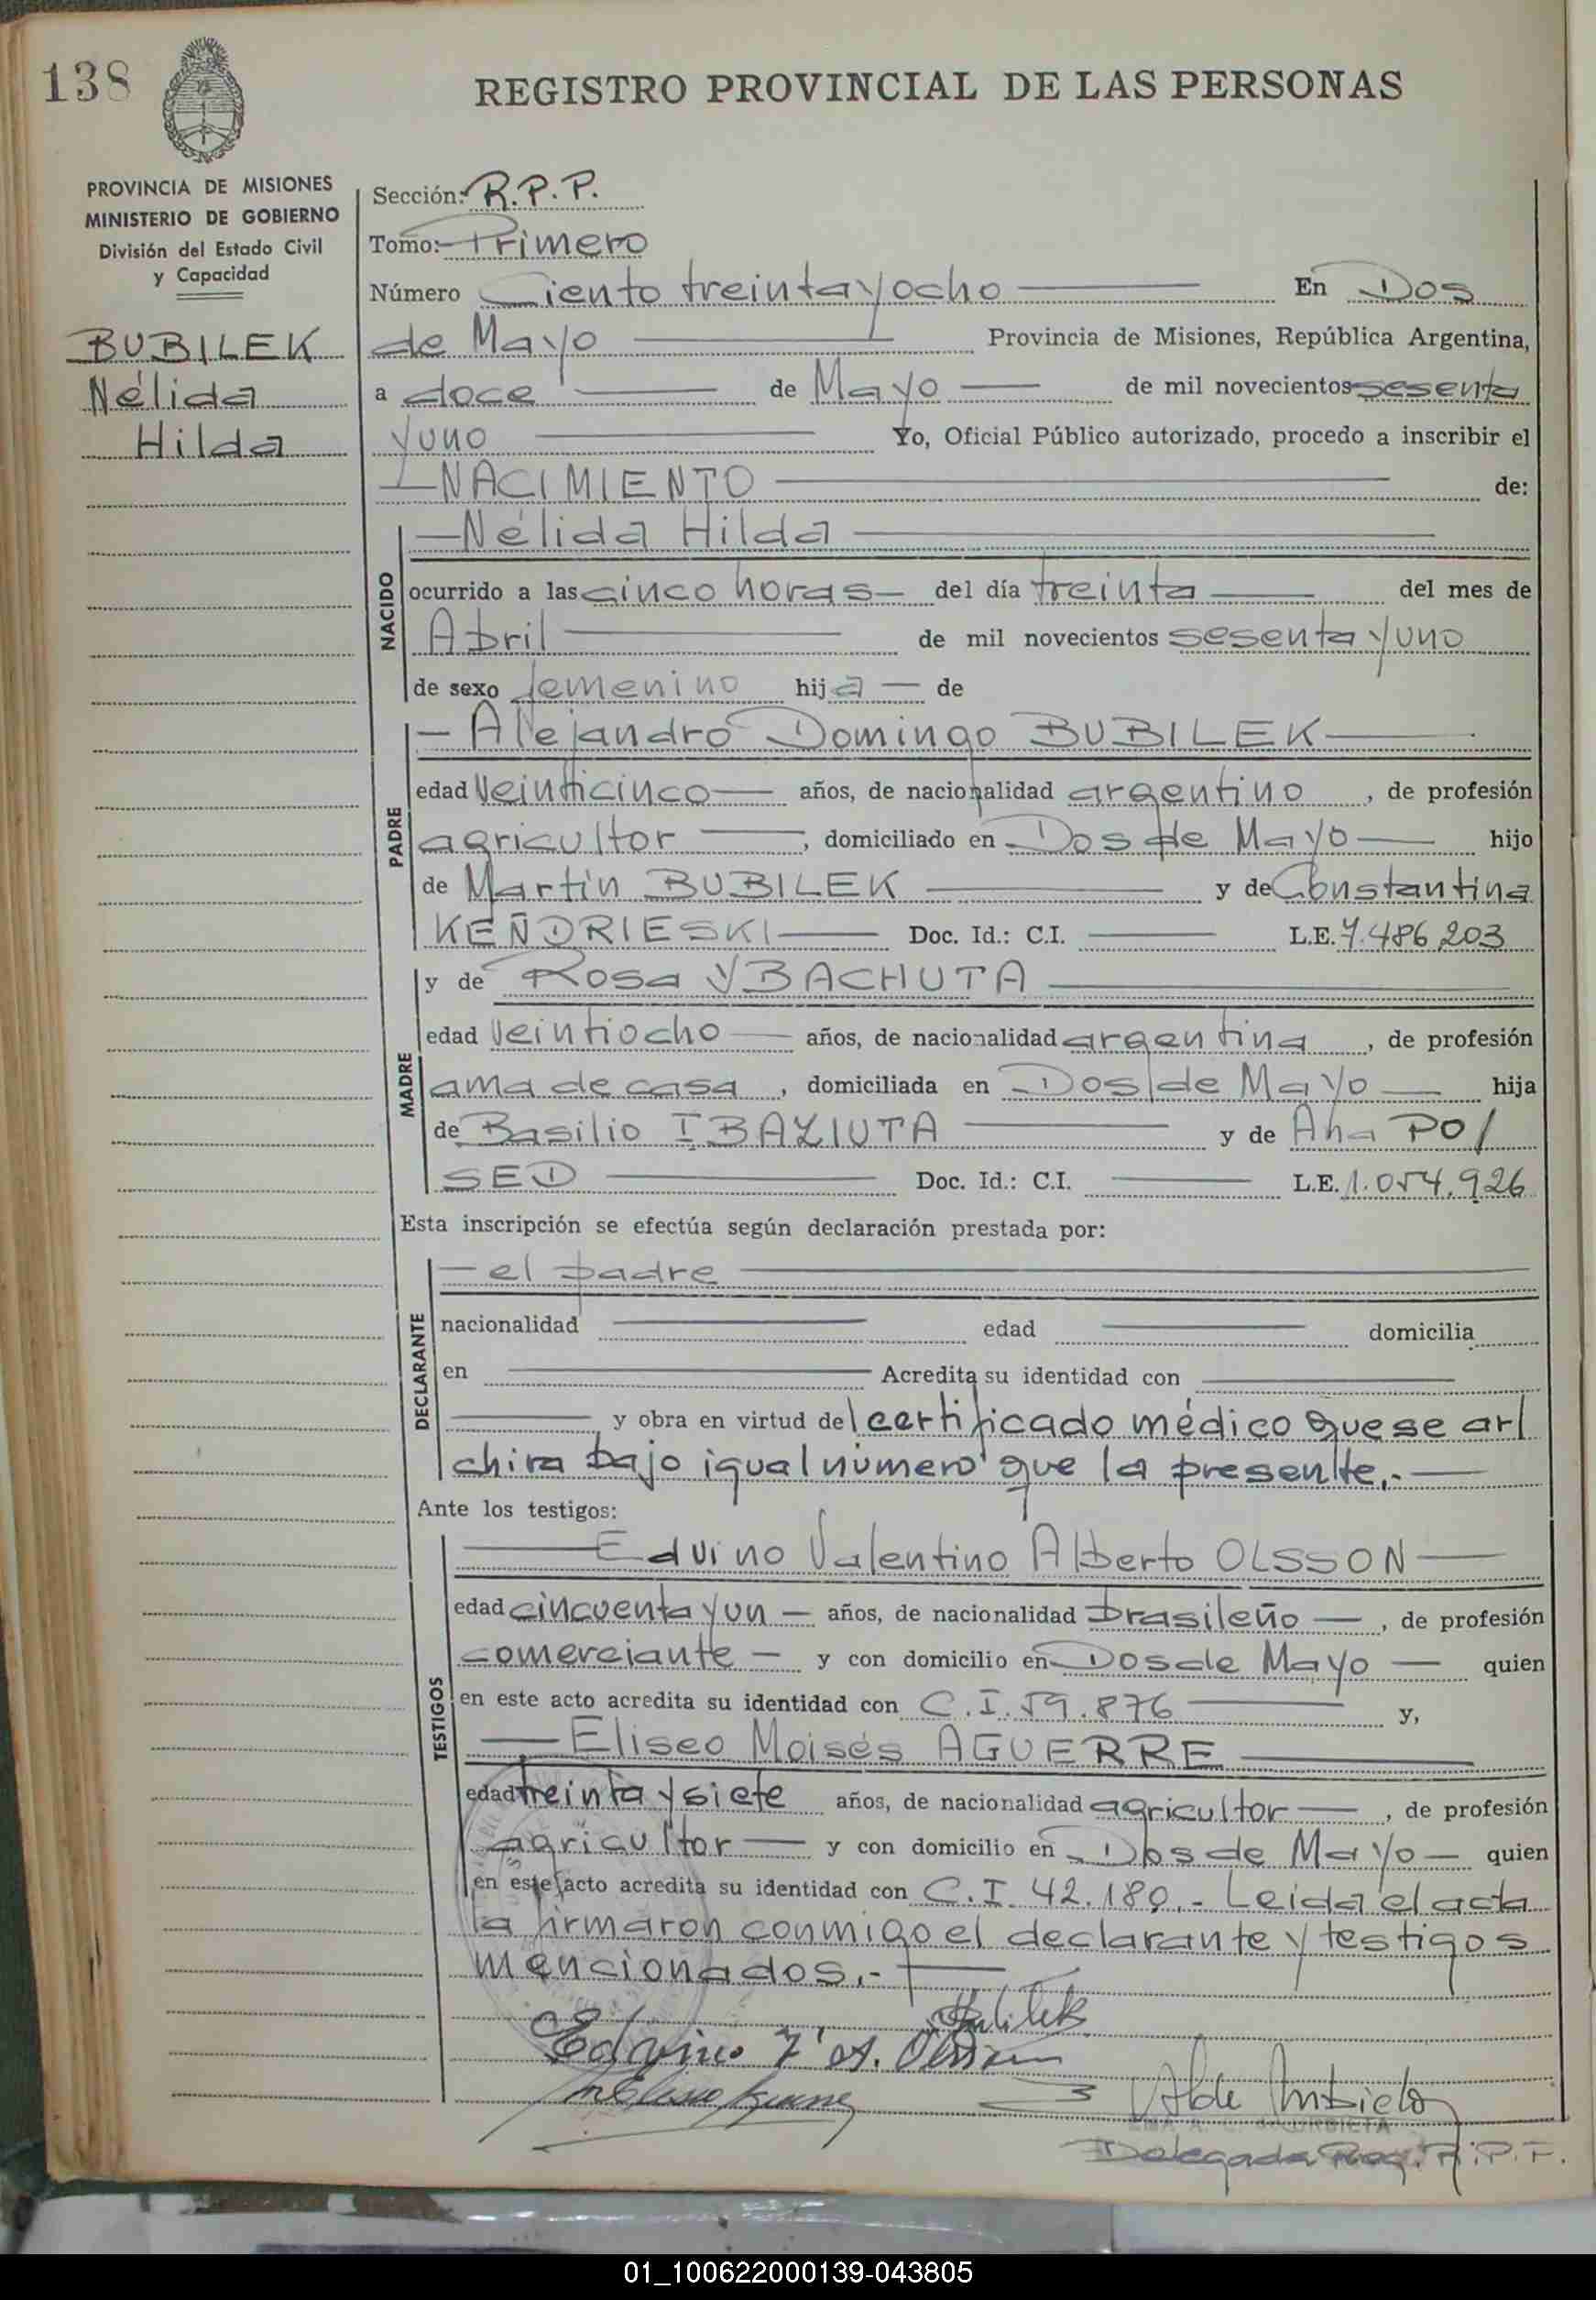 138
REGISTRO PROVINCIAL DE LAS PERSONAS
PROVINCIA DE MISIONES
MINISTERIO DE GOBIERNO
División del Estado Civil
y Capacidad
BUBILEK
Nélida
Hilda
Sección: R.P.P.
Tomo: Primero
Número Ciento treinta y ocho En Dos
de Mayo Provincia de Misiones, República Argentina,
a doce de Mayo de mil novecientos sesenta
y uno Yo, Oficial Público autorizado, procedo a inscribir el
NACIMIENTO de:
NACIDO
Nélida Hilda
ocurrido a las cinco horas del día treinta del mes de
Abril de mil novecientos sesenta y uno
de sexo femenino hija de
PADRE
Alejandro Domingo BUBILEK
edad veinticinco años, de nacionalidad argentino, de profesión
agricultor, domiciliado en Dos de Mayo hijo
de Martín BUBILEK y de Constantina
KEÑDRIESKI Doc. Id.: C.I. L.E. 7.486.203
MADRE
y de Rosa YBACHUTA
edad veintiocho años, de nacionalidad argentina, de profesión
ama de casa, domiciliada en Dos de Mayo hija
de Basilio IBAZIUTA y de Ana PO/
SED Doc. Id.: C.I. L.E. 1.054.926
Esta inscripción se efectúa según declaración prestada por:
DECLARANTE
el padre
nacionalidad edad domicilia
en Acredita su identidad con
y obra en virtud del certificado médico que se ar/
chiva bajo igual número que la presente.-
Ante los testigos:
TESTIGOS
Edvino Valentino Alberto OLSSON
edad cincuenta y un años, de nacionalidad brasileño, de profesión
comerciante y con domicilio en Dos de Mayo quien
en este acto acredita su identidad con C.I. 59.876 y,
Eliseo Moisés AGUERRE
edad treinta y siete años, de nacionalidad agricultor, de profesión
agricultor y con domicilio en Dos de Mayo quien
en este acto acredita su identidad con C.I. 42.180.- Leida el acta
la firmaron conmigo el declarante y testigos
mencionados.-
Delegada R.P.P.
01_100622000139-043805